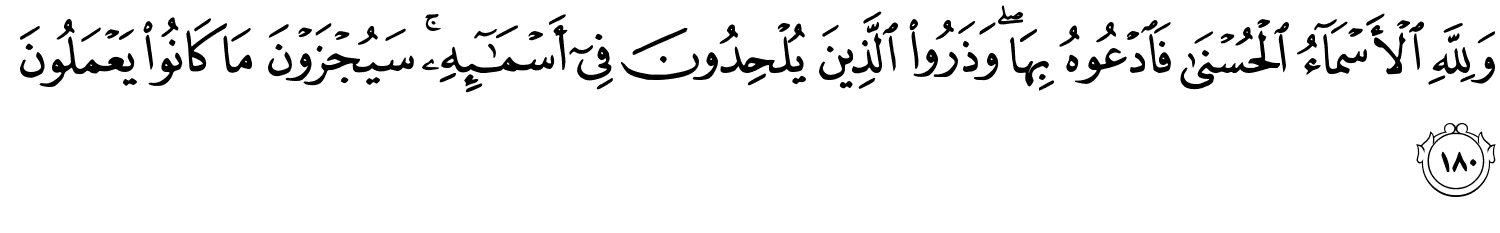 وَلِلَّهِ ٱلْأَسْمَآءُ ٱلْحُسْنَىٰ فَٱدْعُوهُ بِهَا ۖ وَذَرُوا۟ ٱلَّذِينَ يُلْحِدُونَ فِىٓ أَسْمَـٰٓئِهِۦ ۚ سَيُجْزَوْنَ مَا كَانُوا۟ يَعْمَلُونَ
١٨٠